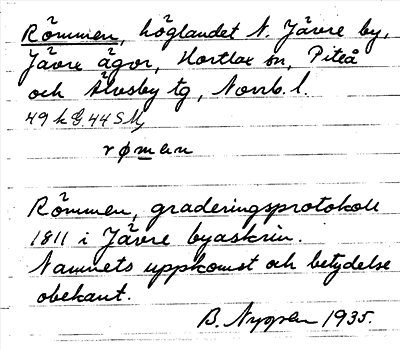 Römmen, höglandet N. Jävre by,
Jävre ägor, Hortlax sn, Piteå
och Älvsby tg, Norrb. l.
49 k G. 44 SM,
røman
Römmen, graderingsprotokoll
1811 i Jävre byaskrin.
Namnets uppkomst och betydelse
obekant.
B. 1935.